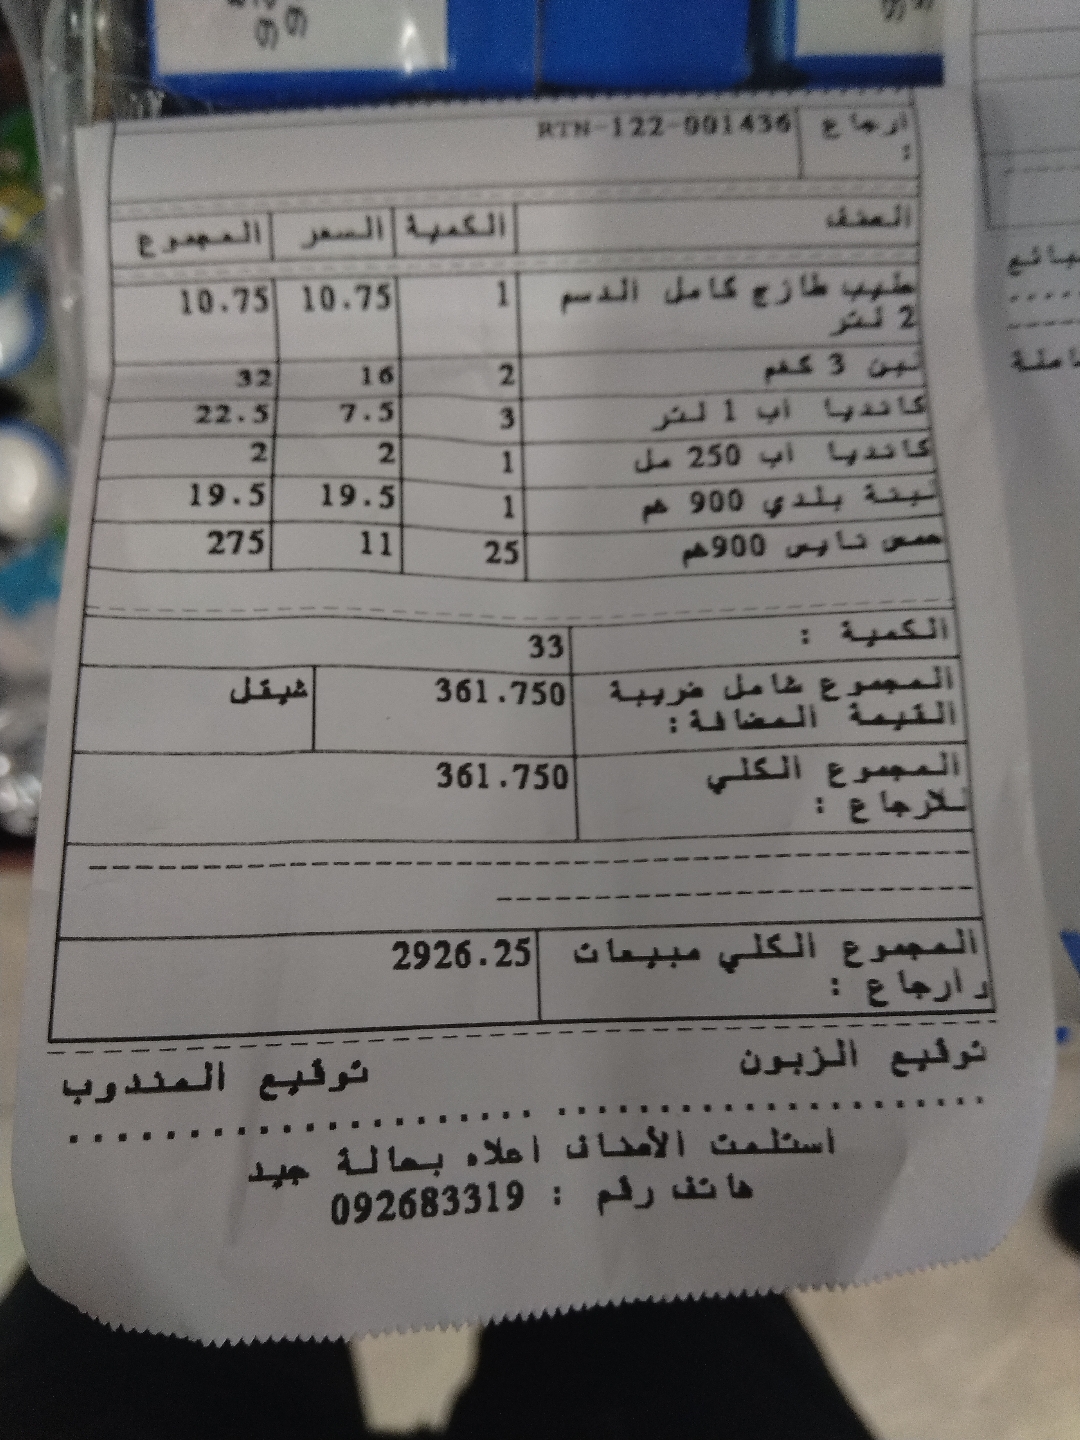 ارجاع RTN-122-001436
:
الصنف الكمية السعر المجموع
حليب طازج كامل الدسم 1 10.75 10.75
2 لتر
لبن 3 كغم 2 16 32
كانديا اب 1 لتر 3 7.5 22.5
كانديا اب 250 مل 1 2 2
لبنة بلدي 900 غم 1 19.5 19.5
حمص نايس 900غم 25 11 275
الكمية : 33
المجموع شامل ضريبة 361.750 شيقل
القيمة المضافة :
المجموع الكلي 361.750
للارجاع :
المجموع الكلي مبيعات 2926.25
وارجاع :
توقيع الزبون توقيع المندوب
استلمت الأصناف اعلاه بحالة جيد
هاتف رقم : 092683319